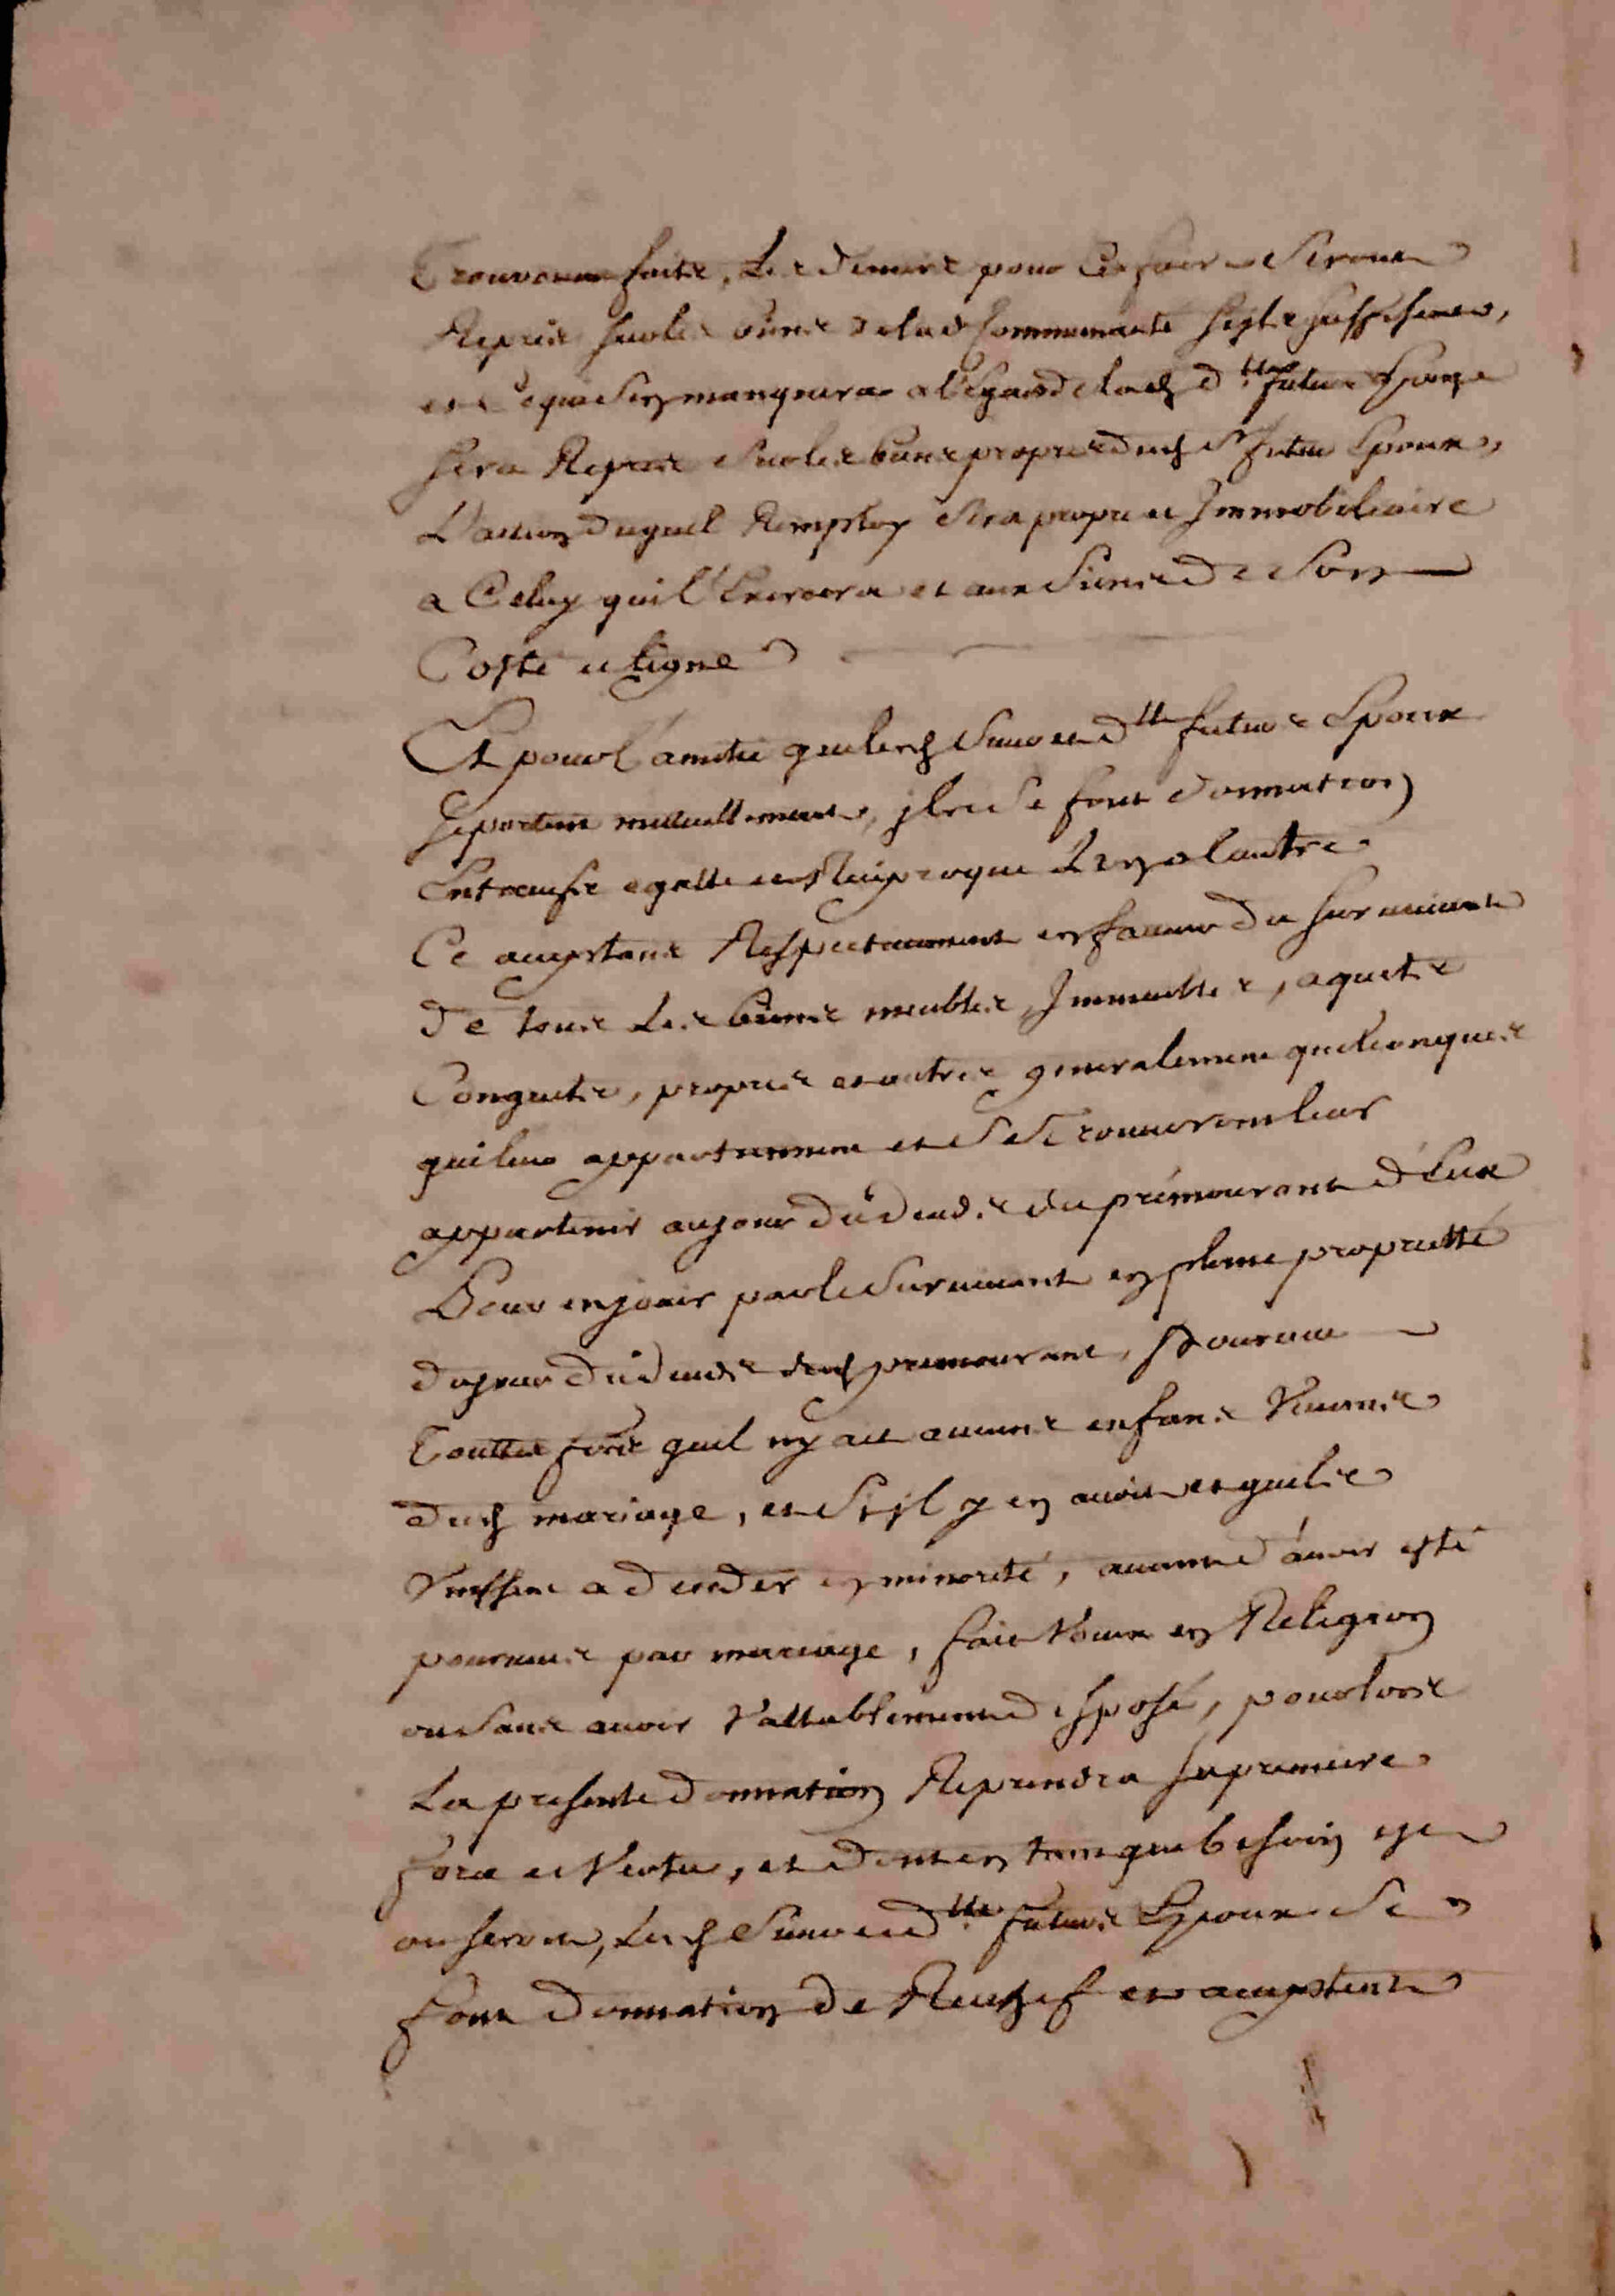 Trouvoient faite, Les deniers pour Ce faire Seront
Repris sur les biens de lad Communauté sy elle suffisent,
et Ce qui sen manquera a l'Egard de lad dlle future Epouze
sera Repris Sur les biens propres dud Sr futur Epoux,
L'action duquel Remploy Sera propre et Immobiliaire
a Celuy qui l'Exercera et aux Siens de Son
Costé et ligne
Et pour l'amitié que lesd Sieur et dlle futurs Epoux
se portent mutuellement, ils se font donnation
Entreufs egalle et Reciproque L'un a lautre
Ce acceptans Respectivement en faveur du survivant
De tous Les biens meubles, Immeubles, aquets
Conquets, propres et autres generalement quelconques
qui leur appartiennent et Se trouveront leur
appartenir au jour du deceds du premourant d'Eux
Pour en jouir par le Survivant en plaine proprietté
du jour du deceds dud premourant, Pourveu
Touttes fois quil ny ait aucuns enfans Vivans
dud mariage, et Si jl y en avoit et quils
Vinssent a deceder en minorité, avant d'avoir esté
pourveus par mariage, fait Voeux en Religion
ou Sans avoir Vallablement disposé, pour lors
La presente donnation Reprendra sa premiere
force et Vertu, et dont en tant que besoin est
ou seroit, Lesd Sieur et dlle futurs Epoux Se
font donnation de Rechef et acceptent